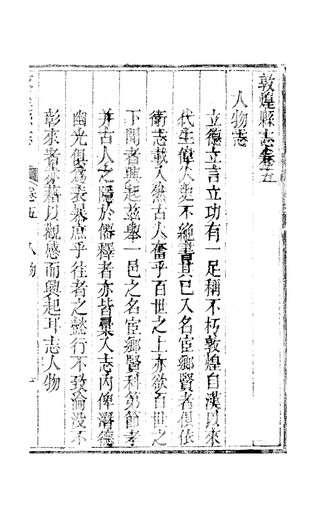 敦煌縣志卷五
人物志
立德立言立功有一足稱不朽敦煌自漢以來
代生偉人史不絶書其已入名宦鄉賢者俱依
衛志載入然古人奮乎百世之上亦欲百世之
下聞者興起玆舉一邑之名宦鄉賢科第節孝
并古人之隱於僑釋者亦皆彙入志内俾潛德
幽光俱爲表暴庶乎往者之懿行不致淪没不
彰來者當藉以觀感而興起耳志人物
卷五 人物 一